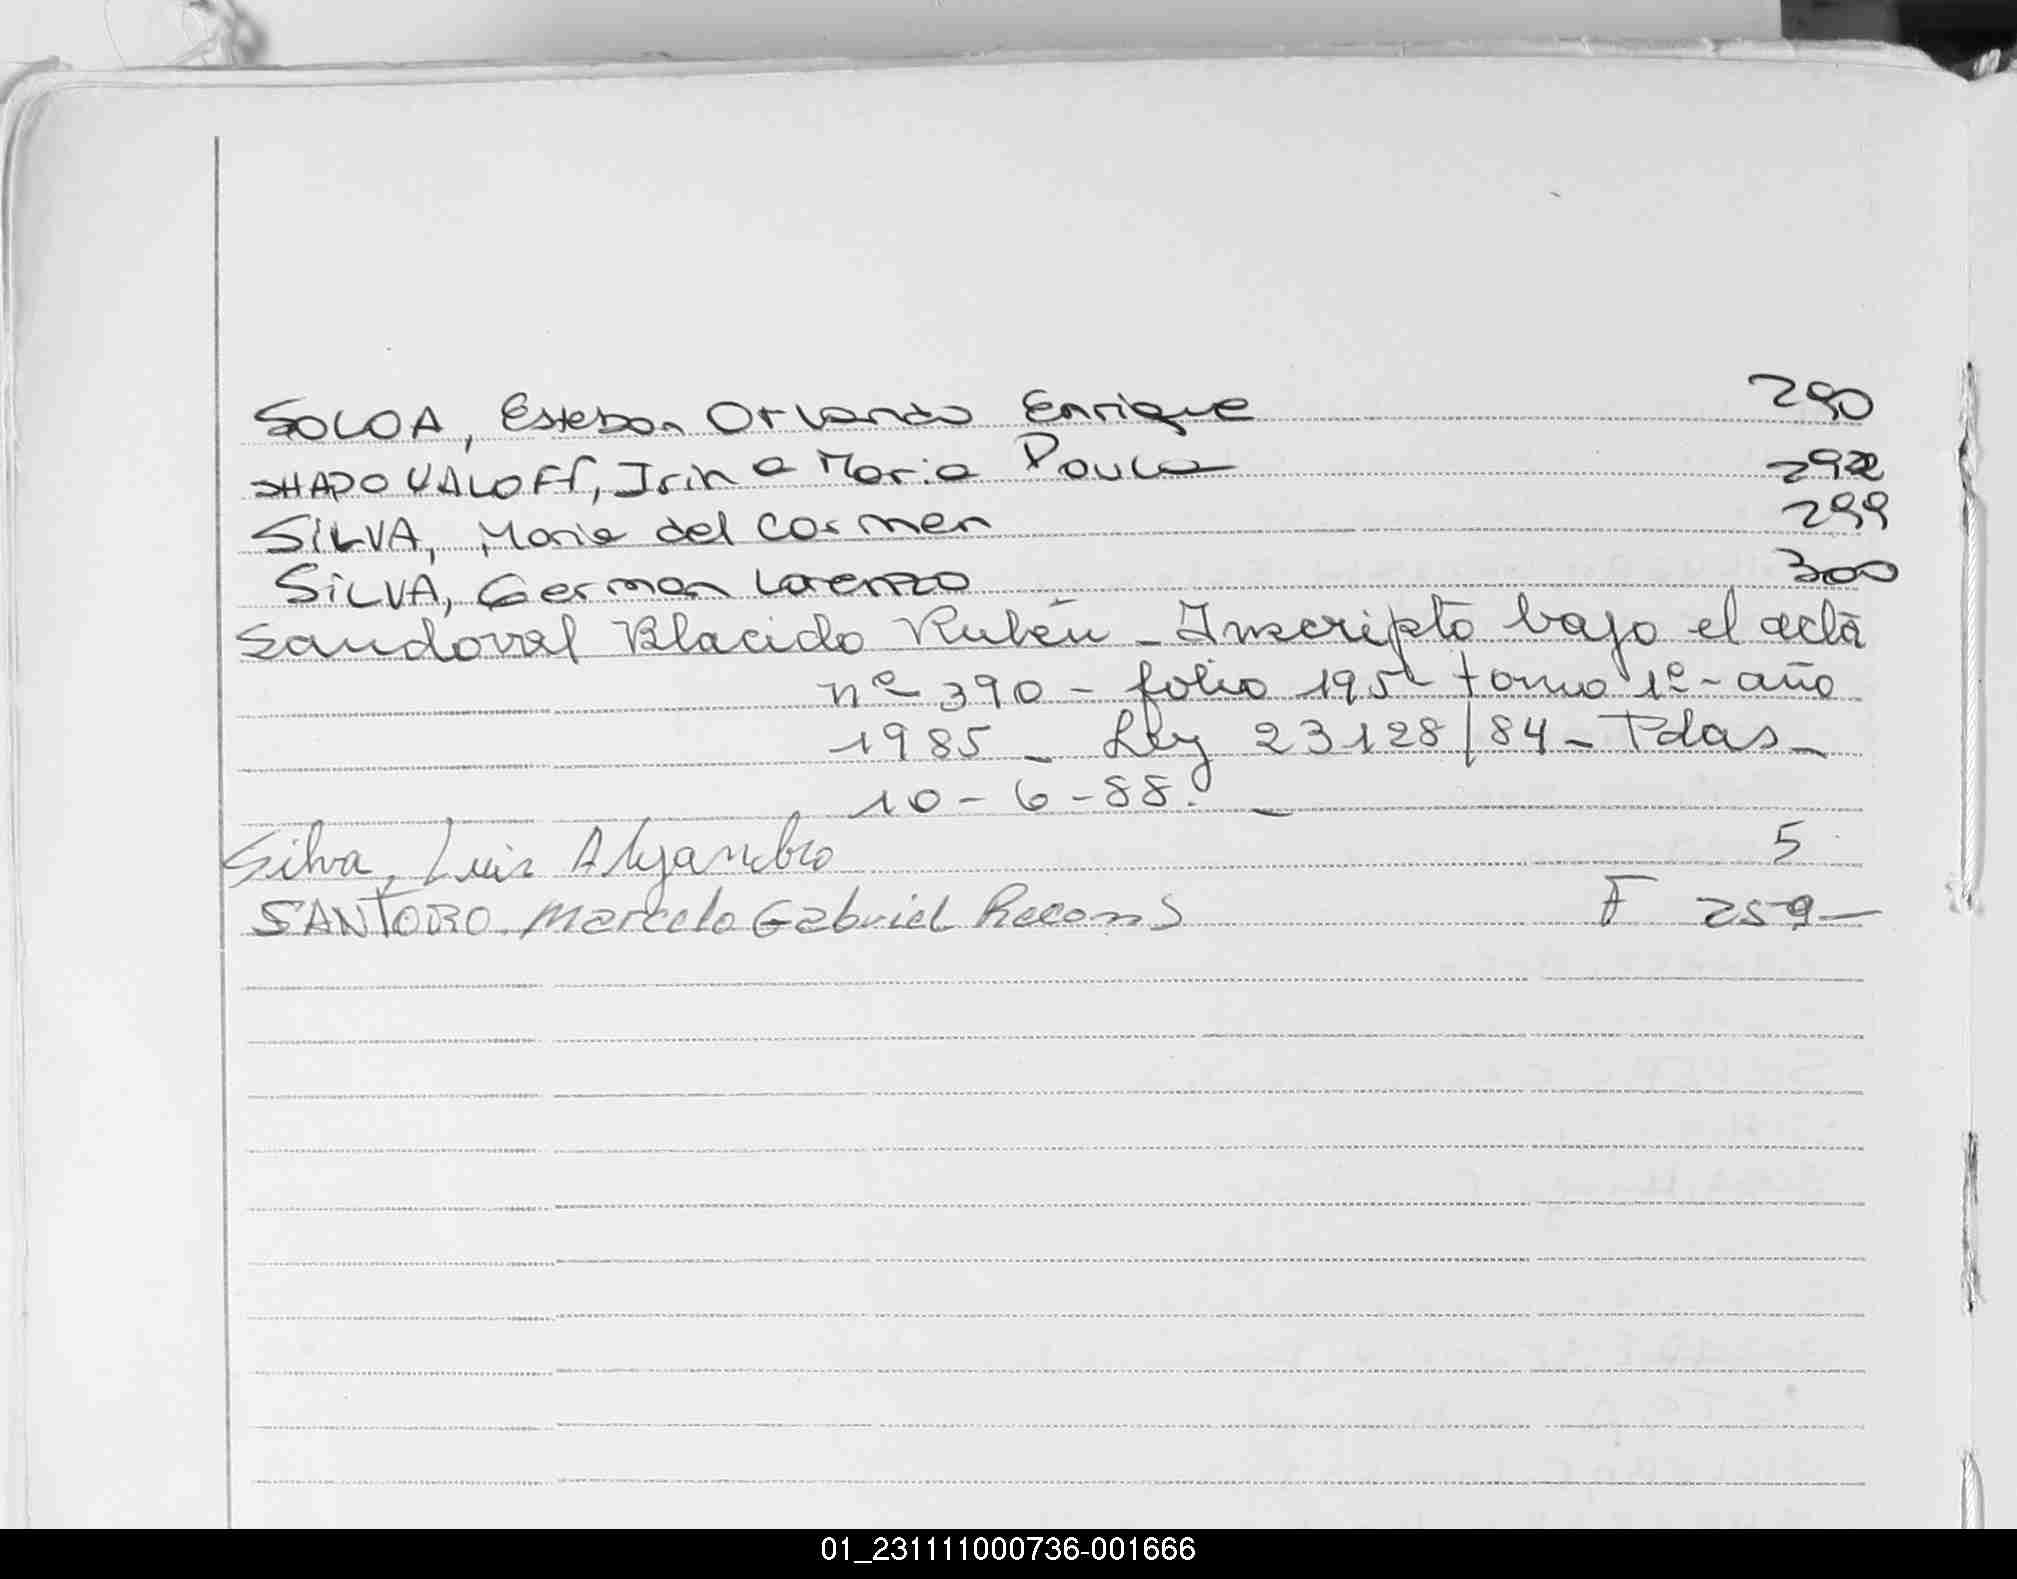 SOLOA, Esteban Orlando Enrique 290
SHAPOVALOFF, Irina Maria Paula 292
SILVA, Maria del Carmen 299
SILVA, German Lorenzo 300
Sandoval Blacido Rubén - Inscripto bajo el acta
nº 390 - folio 195 tomo 1º - año
1985 - Ley 23128/84 - Pdas -
10 - 6 - 88. -
Silva, Luis Alejandro 5
SANTORO. Marcelo Gabriel F 259 -
01_231111000736-001666